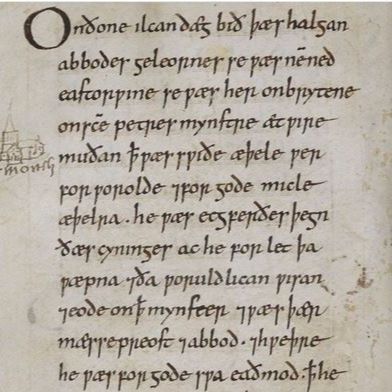 Onðone ilcan dæg bið þæs halgan
abbodes geleornes se ƿæs nēned
eastorƿine se ƿæs her onbrytene
onsc̄e petres mynstre æt ƿire
muðan ꝥ ƿæs sƿiðe æþele ƿer
for ƿorolde ⁊ for gode micle
æþelra · he ƿæs ecgferðes þegn
ðæs cyninges ac he for let þa
ƿæpna ⁊ ða ƿoruldlican ƿisan
⁊ eode on ꝥ mynster ⁊ ƿæs þær
mæssepreost ⁊ abbod · ⁊ hƿeþre
he ƿæs for gode sƿa eaðmod · ꝥ he